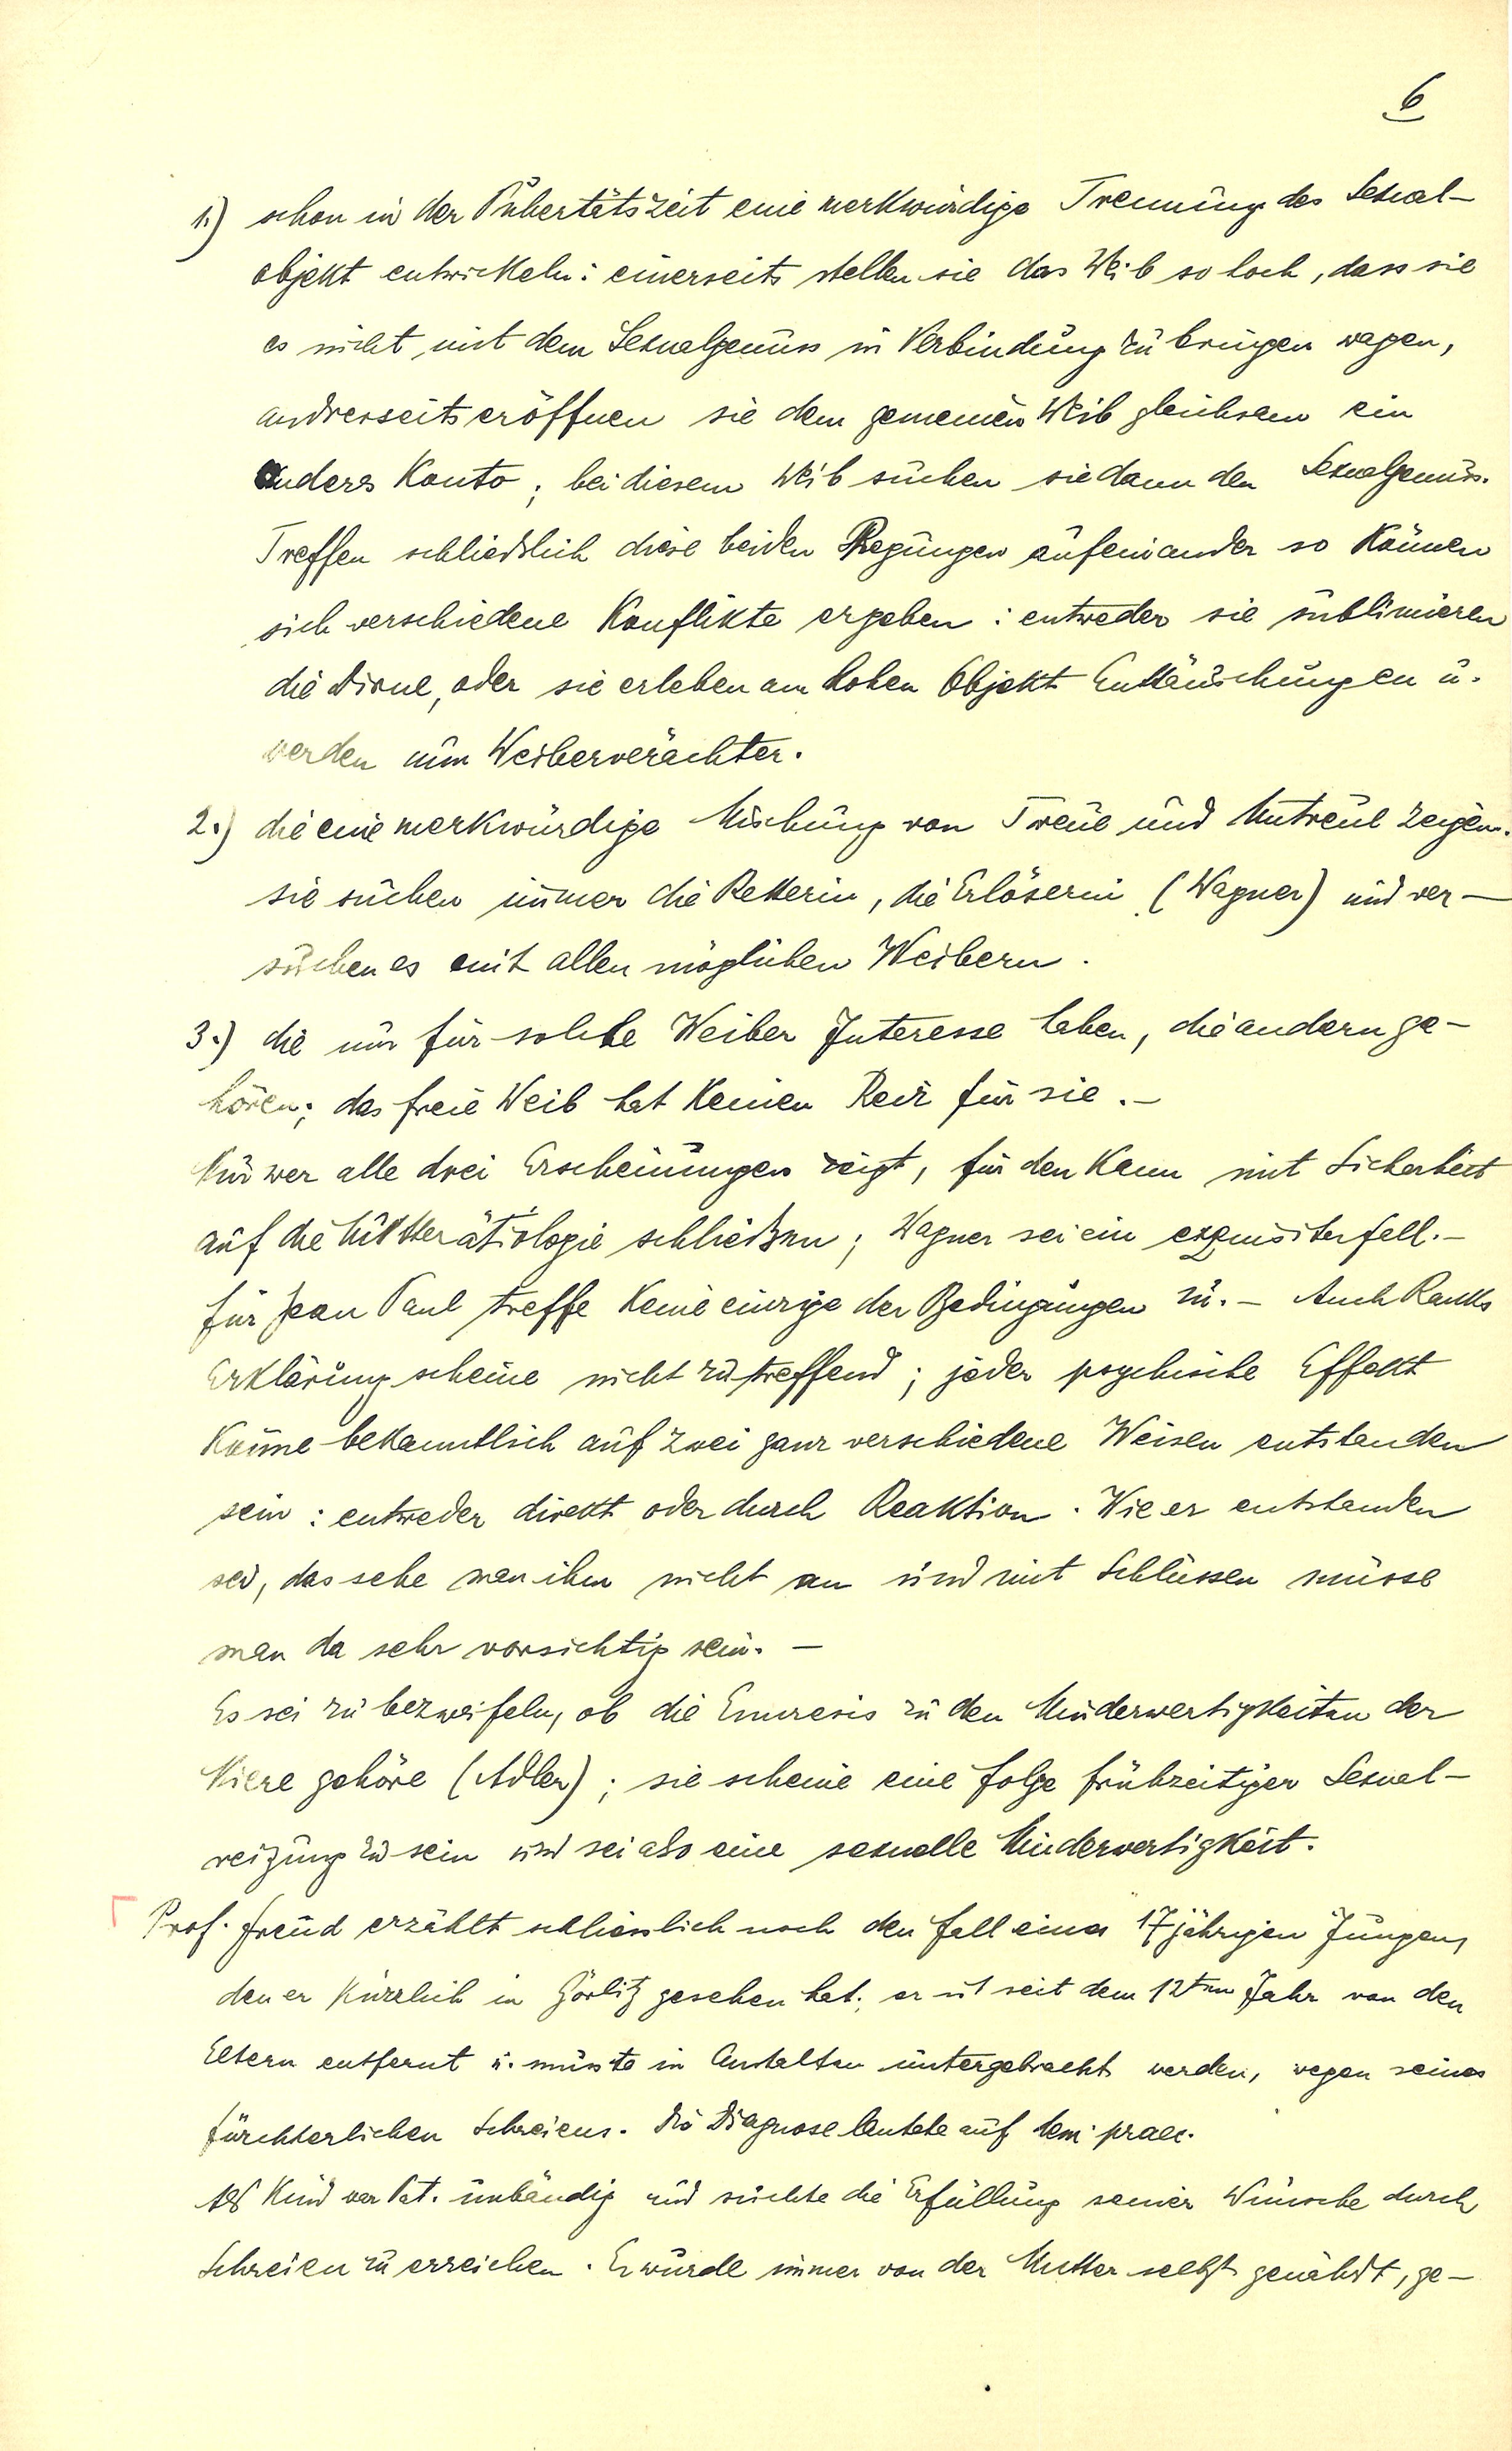 6
1.) schon in der Pubertätszeit eine merkwürdige Trennung des Sexual-
objekt entwickeln: einerseits stellen sie das Weib so hoch, dass sie
es nicht mit dem Sexualgenuss in Verbindung zu bringen wagen,
andrerseits eröffnen sie dem gemeinen Weib gleichsam ein
anders Konto; bei diesem Weib suchen sie dann den Sexualgenuss.
Treffen schliesslich diese beiden Regungen aufeinander so können
sich verschiedene Konflikte ergeben: entweder sie sublimieren
die Dirne, oder sie erleben am hohen Objekt Enttäuschungen u.
werden nun Weiberverächter.
2.) die eine merkwürdige Mischung von Treue und Untreue zeigen.
sie suchen immer die Retterin, die Erlöserin (Wagner) und ver-
suchen es mit allen möglichen Weibern.
3.) die nur für solche Weiber Interesse haben, die andern ge-
hören; das freie Weib hat keinen Reiz für sie.-
Nur wer alle drei Erscheinungen zeigt, für den kann mit Sicherheit
auf die Mutterätiologie schließen; Wagner sei ein exquisiter Fall.-
für Jean Paul treffe keine einzige der Bedingungen zu.- Auch Ranks
Erklärung scheine nicht zutreffend; jeder psychische Effekt
könne bekanntlich auf zwei ganz verschiedene Weisen entstanden
sein: entweder direkt oder durch Reaktion. Wie er entstanden
sei, das sehe man ihm nicht an und mit Schlüssen müsse
man da sehr vorsichtig sein. -
Es sei zu bezweifeln, ob die Enuresis zu den Minderwertigkeiten der
Niere gehöre (Adler); sie scheine eine Folge frühzeitiger Sexual-
reizung zu sein und sei also eine sexuelle Minderwertigkeit.
Prof. Freud erzählt schliesslich noch den Fall eines 17jährigen Jungen,
den er kürzlich in Görlitz gesehen hat; er ist seit dem 12ten Jahr von den
Eltern entfernt u. musste in Anstalten untergebracht werden, wegen seines
fürchterlichen Schreiens. Die Diagnose lautete auf dem. praec.
Als Kind war Pat. unbändig und suchte die Erfüllung seiner Wünsche durch
Schreien zu erreichen. Er wurde immer von der Mutter selbst genährt, ge-